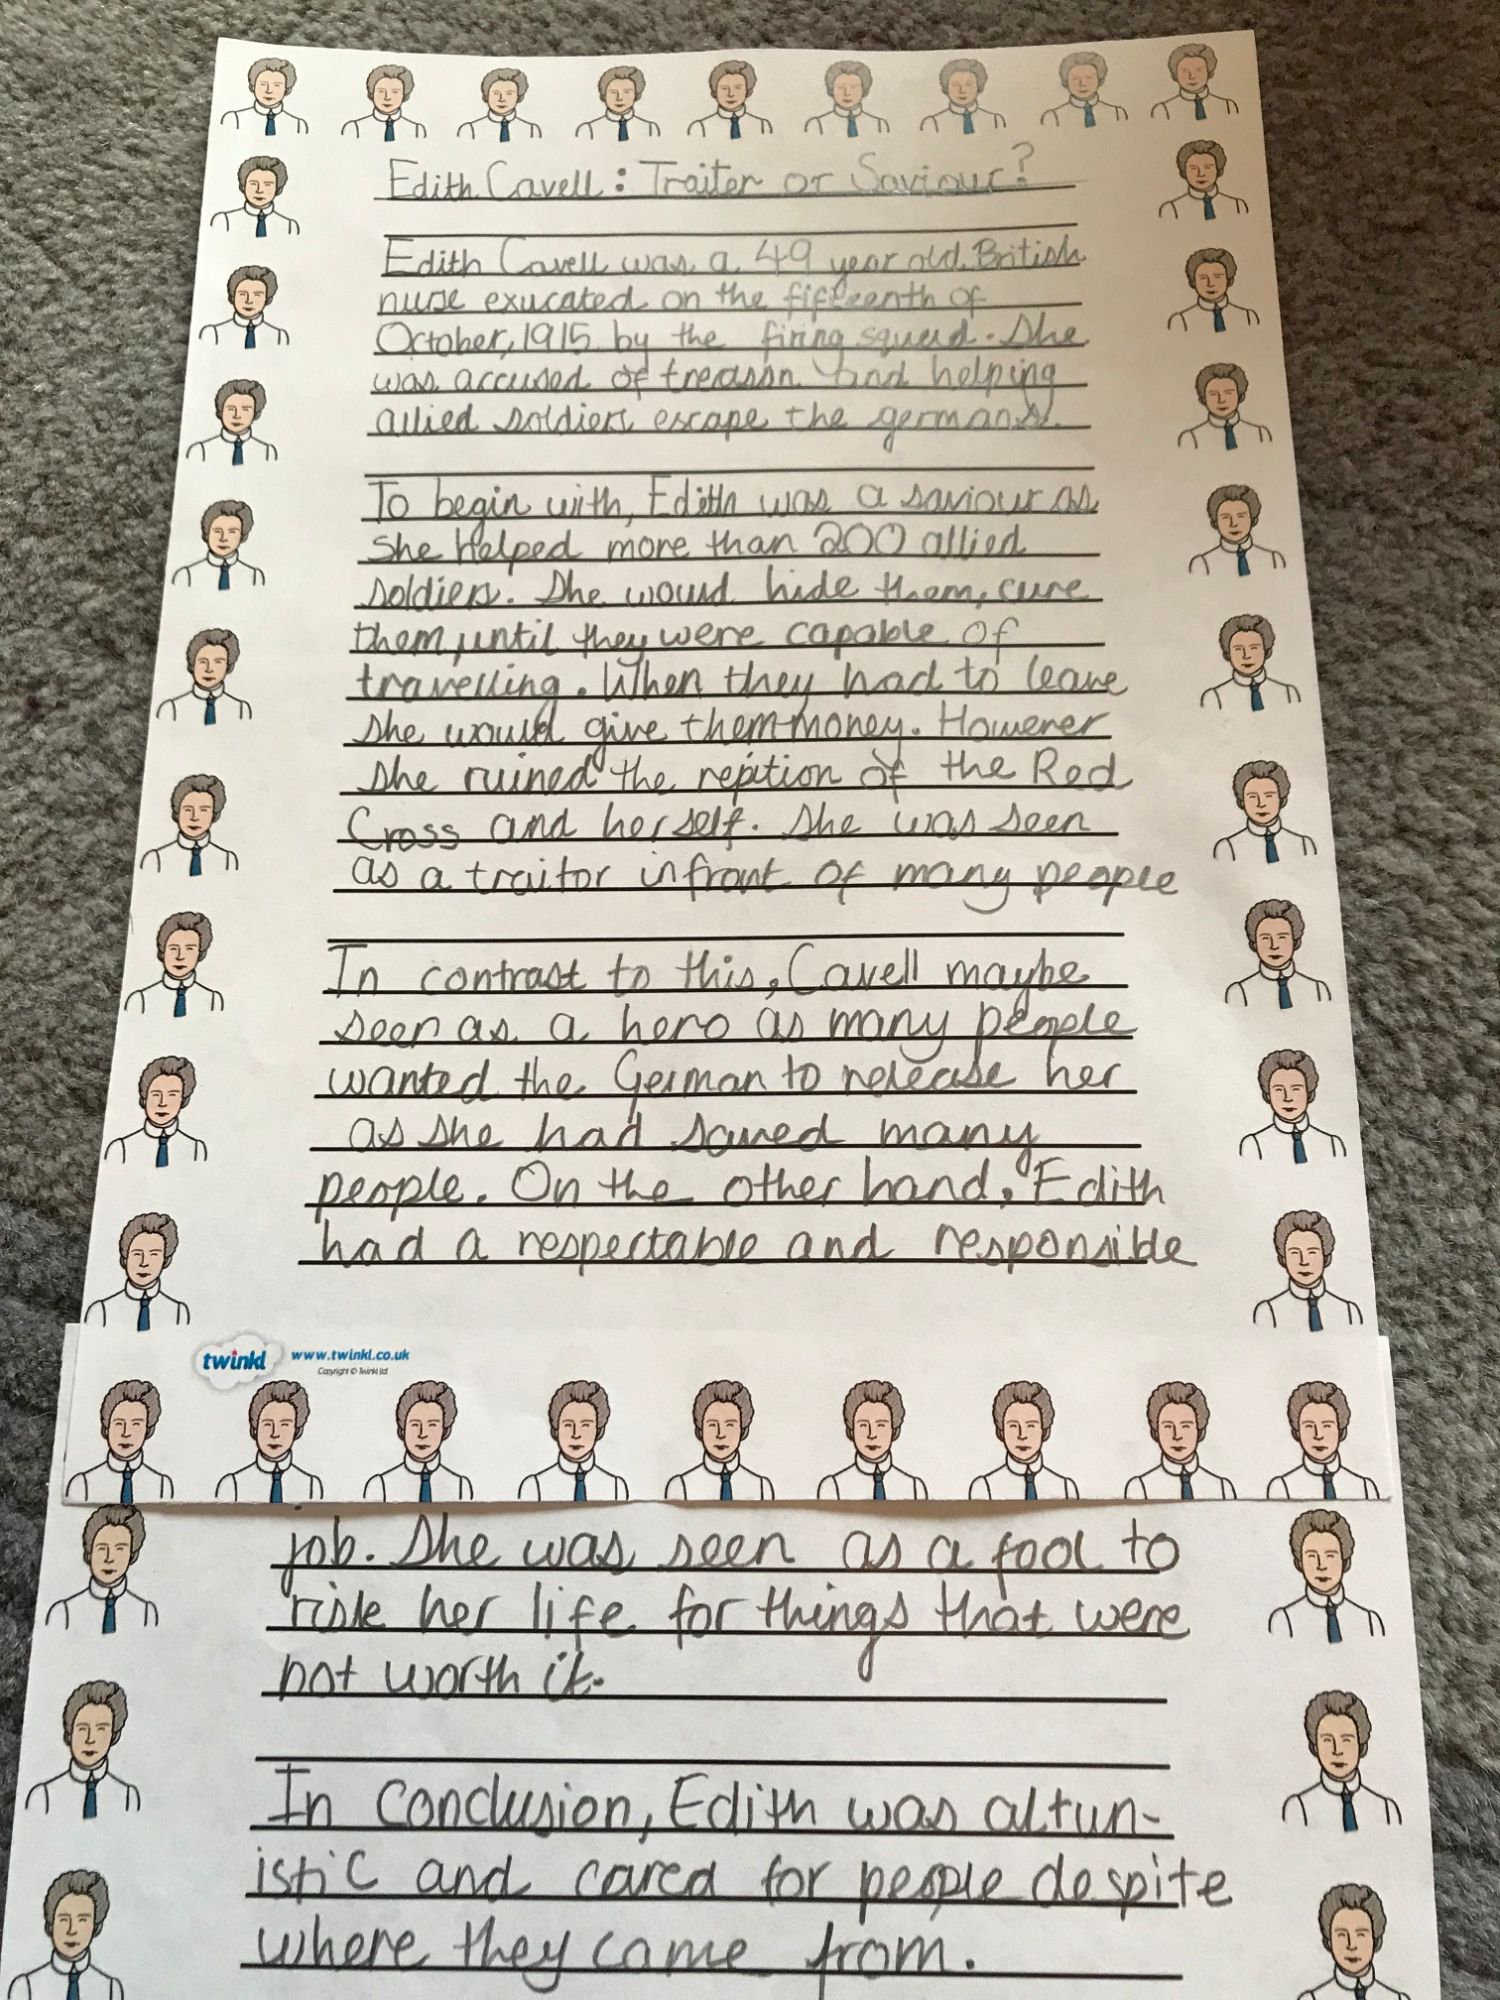 Edith Cavell: Traiter or Saviour?
Edith Cavell was a 49 year old British
nurse exucated on the fifteenth of
October, 1915 by the firing squad. She
was accused of treason and helping
allied soldiers escape the germans.
To begin with, Edith was a saviour as
she helped more than 200 allied
soldiers. She would hide them, cure
them, until they were capable of
travelling. When they had to leave
she would give them money. However
she ruined the repition of the Red
Cross and herself. She was seen
as a traitor infront of many people
In contrast to this, Cavell maybe
seen as a hero as many people
wanted the German to release her
as she had saved many
people. On the other hand, Edith
had a respectable and responsible
twinkl www.twinkl.co.uk
Copyright © Twinkl Ltd
job. She was seen as a fool to
risk her life for things that were
not worth it.
In conclusion, Edith was altun-
istic and cared for people despite
where they came from.